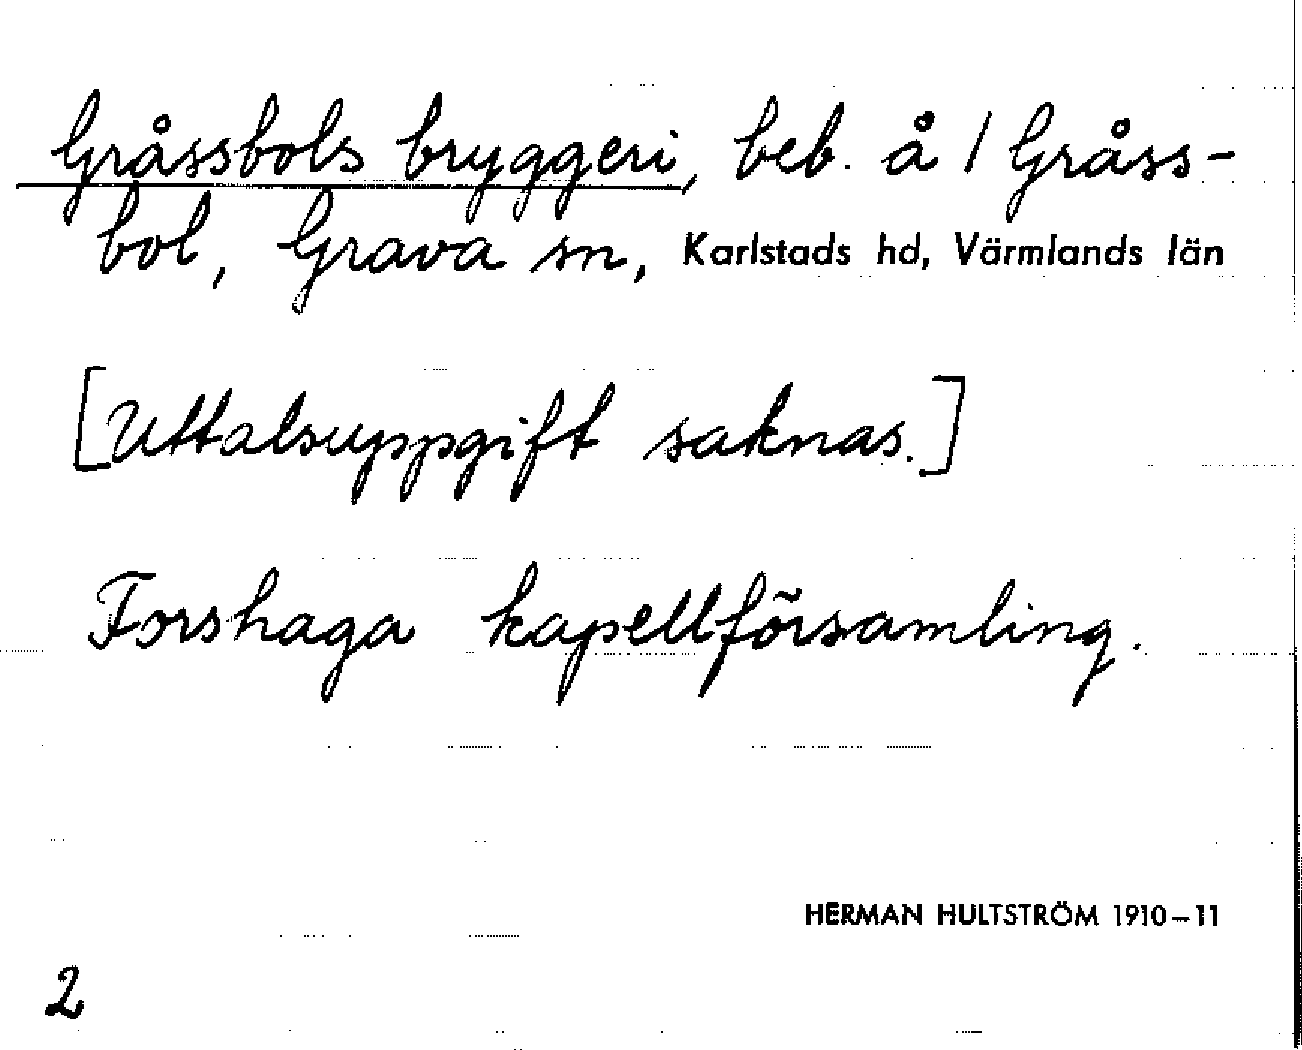 Gråssbols bryggeri, beb. å / Gråss-
bol, Grava sn, Karlstads hd, Värmlands län
[Uttalsuppgift saknas.]
Forshaga kapellförsamling.
HERMAN HULTSTRÖM 1910–11
2